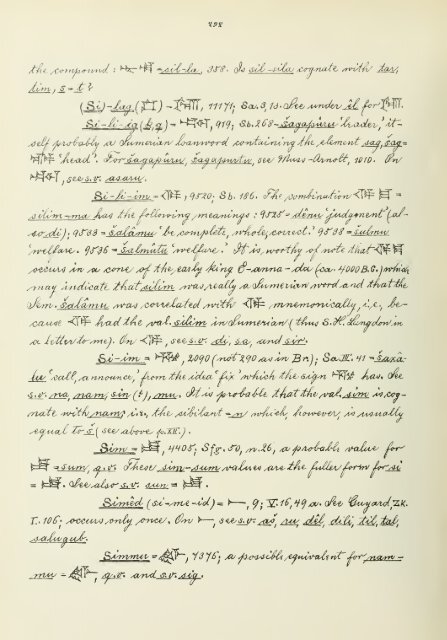 298
the compound : 𒁇 𒆷 = sil-la, 358. Is sil-sila cognate with tar,
tim, s = t?
(Si)-lag () = , 11171; Sa. 3, 15. See under il for
Si-li-ig (k, g) = , 919; Sb. 268 = šagapûru 'leader,' it-
self probably a Sumerian loanword containing the element sag, šag =
'head'. For šagapûru, šagapurtu, see Muss-Arnolt, 1010. On
, see s.v. asaru.
Si-li-im = , 9520; Sb. 186. The combination =
silim-ma has the following meanings: 9525 = dênu 'judgment' (al-
so di); 9533 = šalâmu 'be complete, whole, correct.' 9538 = šulmu
'welfare. 9536 = šalmûtu 'welfare.' It is worthy of note that
occurs in a cone of the early king E-anna-du (ca. 4000 B.C.) which
may indicate that silim was really a Sumerian word and that the
Sem. šalâmu was correlated with mnemonically, i.e., be-
cause had the val. silim in Sumerian (thus S.H. Langdon in
a letter to me). On , see s.v. di, sa, and sir.
Si-im = , 2090 (not 290 as in Br.); Sa. IV. 41 = šaxâ-
tu 'call, announce,' from the idea 'fix' which the sign has. See
s.v. na, nam, sin (t), mu. It is probable that the val. sim is cog-
nate with nam; i.e., the sibilant = n which, however, is usually
equal to š (see above p. XII.).
Sim = , 4405, Sfg. 50, n. 26, a probable value for
= sum, q.v. These sim-sum values are the fuller form for si
= . See also s.v. sun = .
Simêd (si-me-id) = , 9; V. 16, 49 a. See Guyard, ZK.
I. 106; occurs only once. On , see s.v. aš, ru, dêl, dili, til, tal,
salugub.
Simmu = , 7376; a possible equivalent for nam-
mu = , q.v. and s.v. sig.